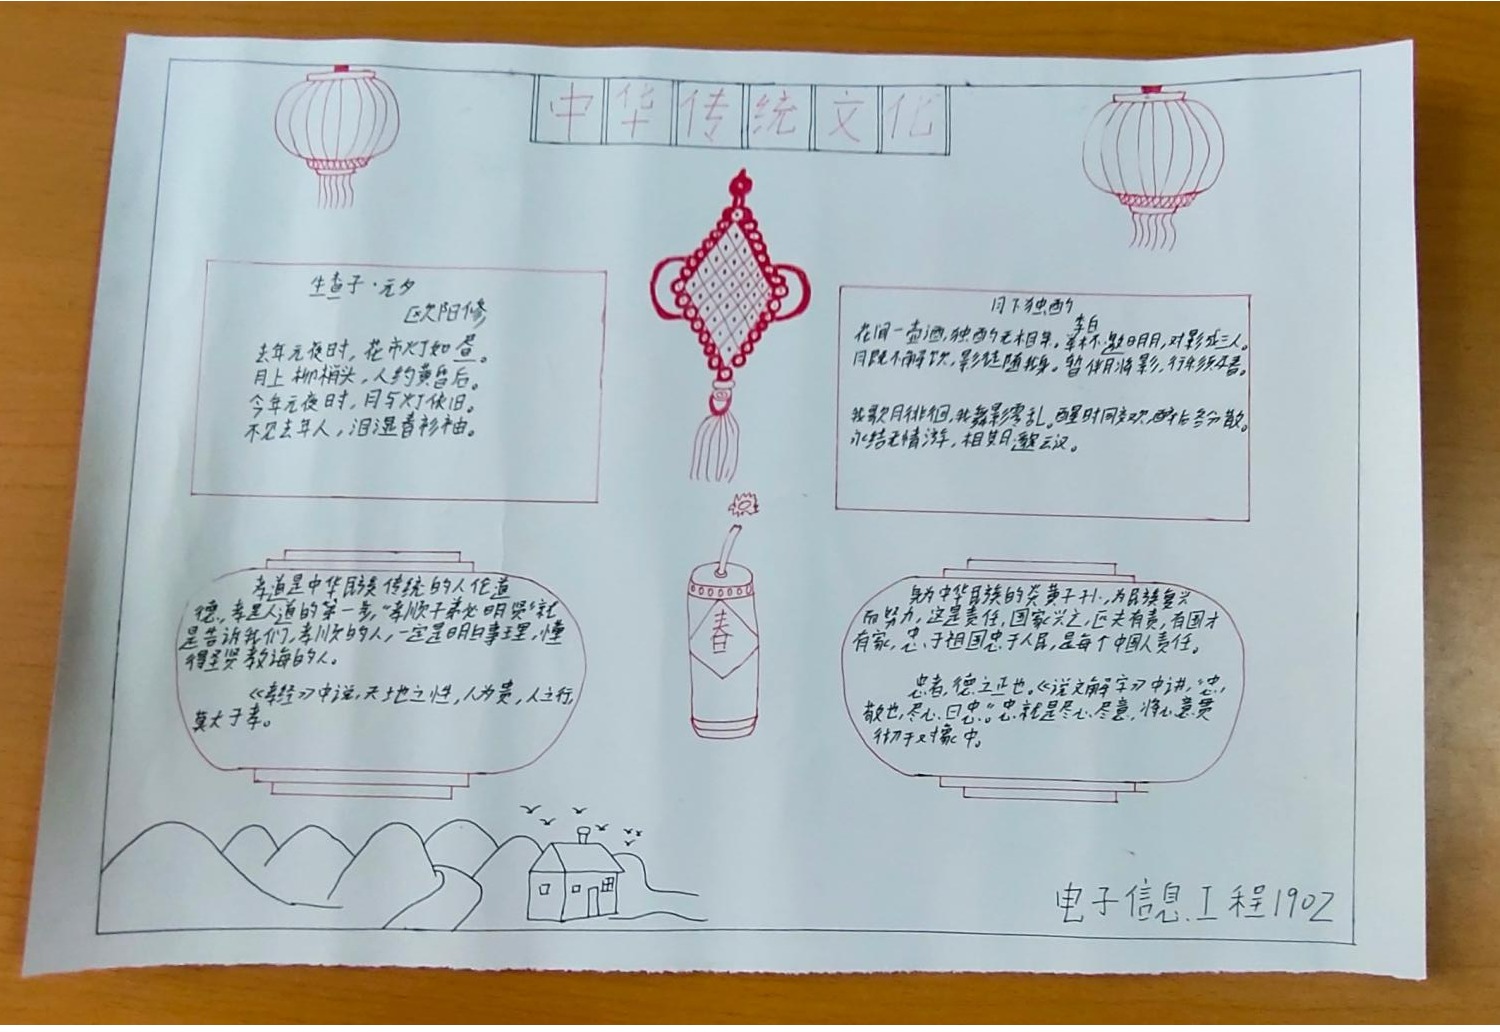 中华传统文化
生查子·元夕
欧阳修
去年元夜时，花市灯如昼。
月上柳梢头，人约黄昏后。
今年元夜时，月与灯依旧。
不见去年人，泪湿春衫袖。
月下独酌
李白
花间一壶酒，独酌无相亲，举杯邀明月，对影成三人。
月既不解饮，影徒随我身。暂伴月将影，行乐须及春。
我歌月徘徊，我舞影零乱。醒时同交欢，醉后各分散。
永结无情游，相期邈云汉。
春
孝道是中华民族传统的人伦道
德，孝是人道的第一步，“孝顺子弟必明贤”就
是告诉我们，孝顺的人，一定是明白事理，懂
得圣贤教诲的人。
《孝经》中说，天地之性，人为贵，人之行，
莫大于孝。
身为中华民族的炎黄子孙，为民族复兴
而努力，这是责任，国家兴之，匹夫有责，有国才
有家，忠于祖国忠于人民，是每个中国人责任。
忠者，德之正也。《说文解字》中讲，“忠，
敬也，尽心曰忠。”忠就是尽心尽意，将心意贯
彻于对象中。
电子信息工程1902